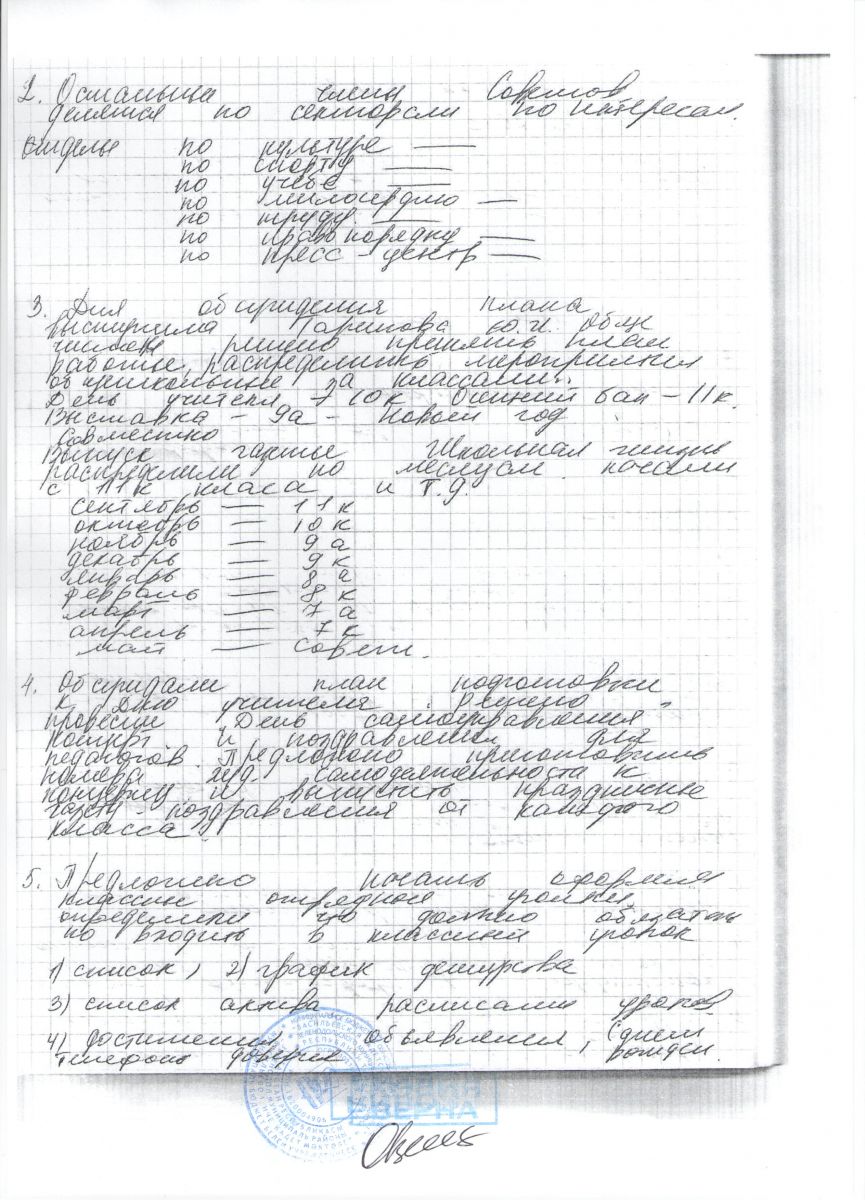 2. Остальные члены Советов
делятся по секторам по интересам.
отделы по культуре —
по спорту —
по учебе —
по милосердию —
по труду —
по правопорядку —
по пресс-центр —
3. Для обсуждения плана
выступила Гарипова
решено принять план
работы, распределить мероприятия
общешкольные за классами.
День учителя – 10к Осенний бал – 11к.
Выставка – 9а – Новый год
совместно
Выпуск газеты Школьная жизнь
распределили по месяцам начали
с 11к класа и т.д.
сентябрь — 11к
октябрь — 10к
ноябрь — 9а
декабрь — 9к
январь — 8а
февраль — 8к
март — 7а
апрель — 7к
май — Совет.
4. Обсуждали план подготовки
к Дню учителя. Решено
провести "День самоуправления"
концерт и поздравления для
педагогов. Предложено приготовить
номера худ. самодеятельности к
концерту и выпустить праздничные
газету-поздравления от каждого
класса.
5. Предложено начать оформля
классные уголки,
определили что должно обязатель
но входить в классный уголок
1) список, 2) график дежурства
3) список актива расписание уроков
4) достижения, объявления, (днем
телефон доверия рожден.
ВЕРНА